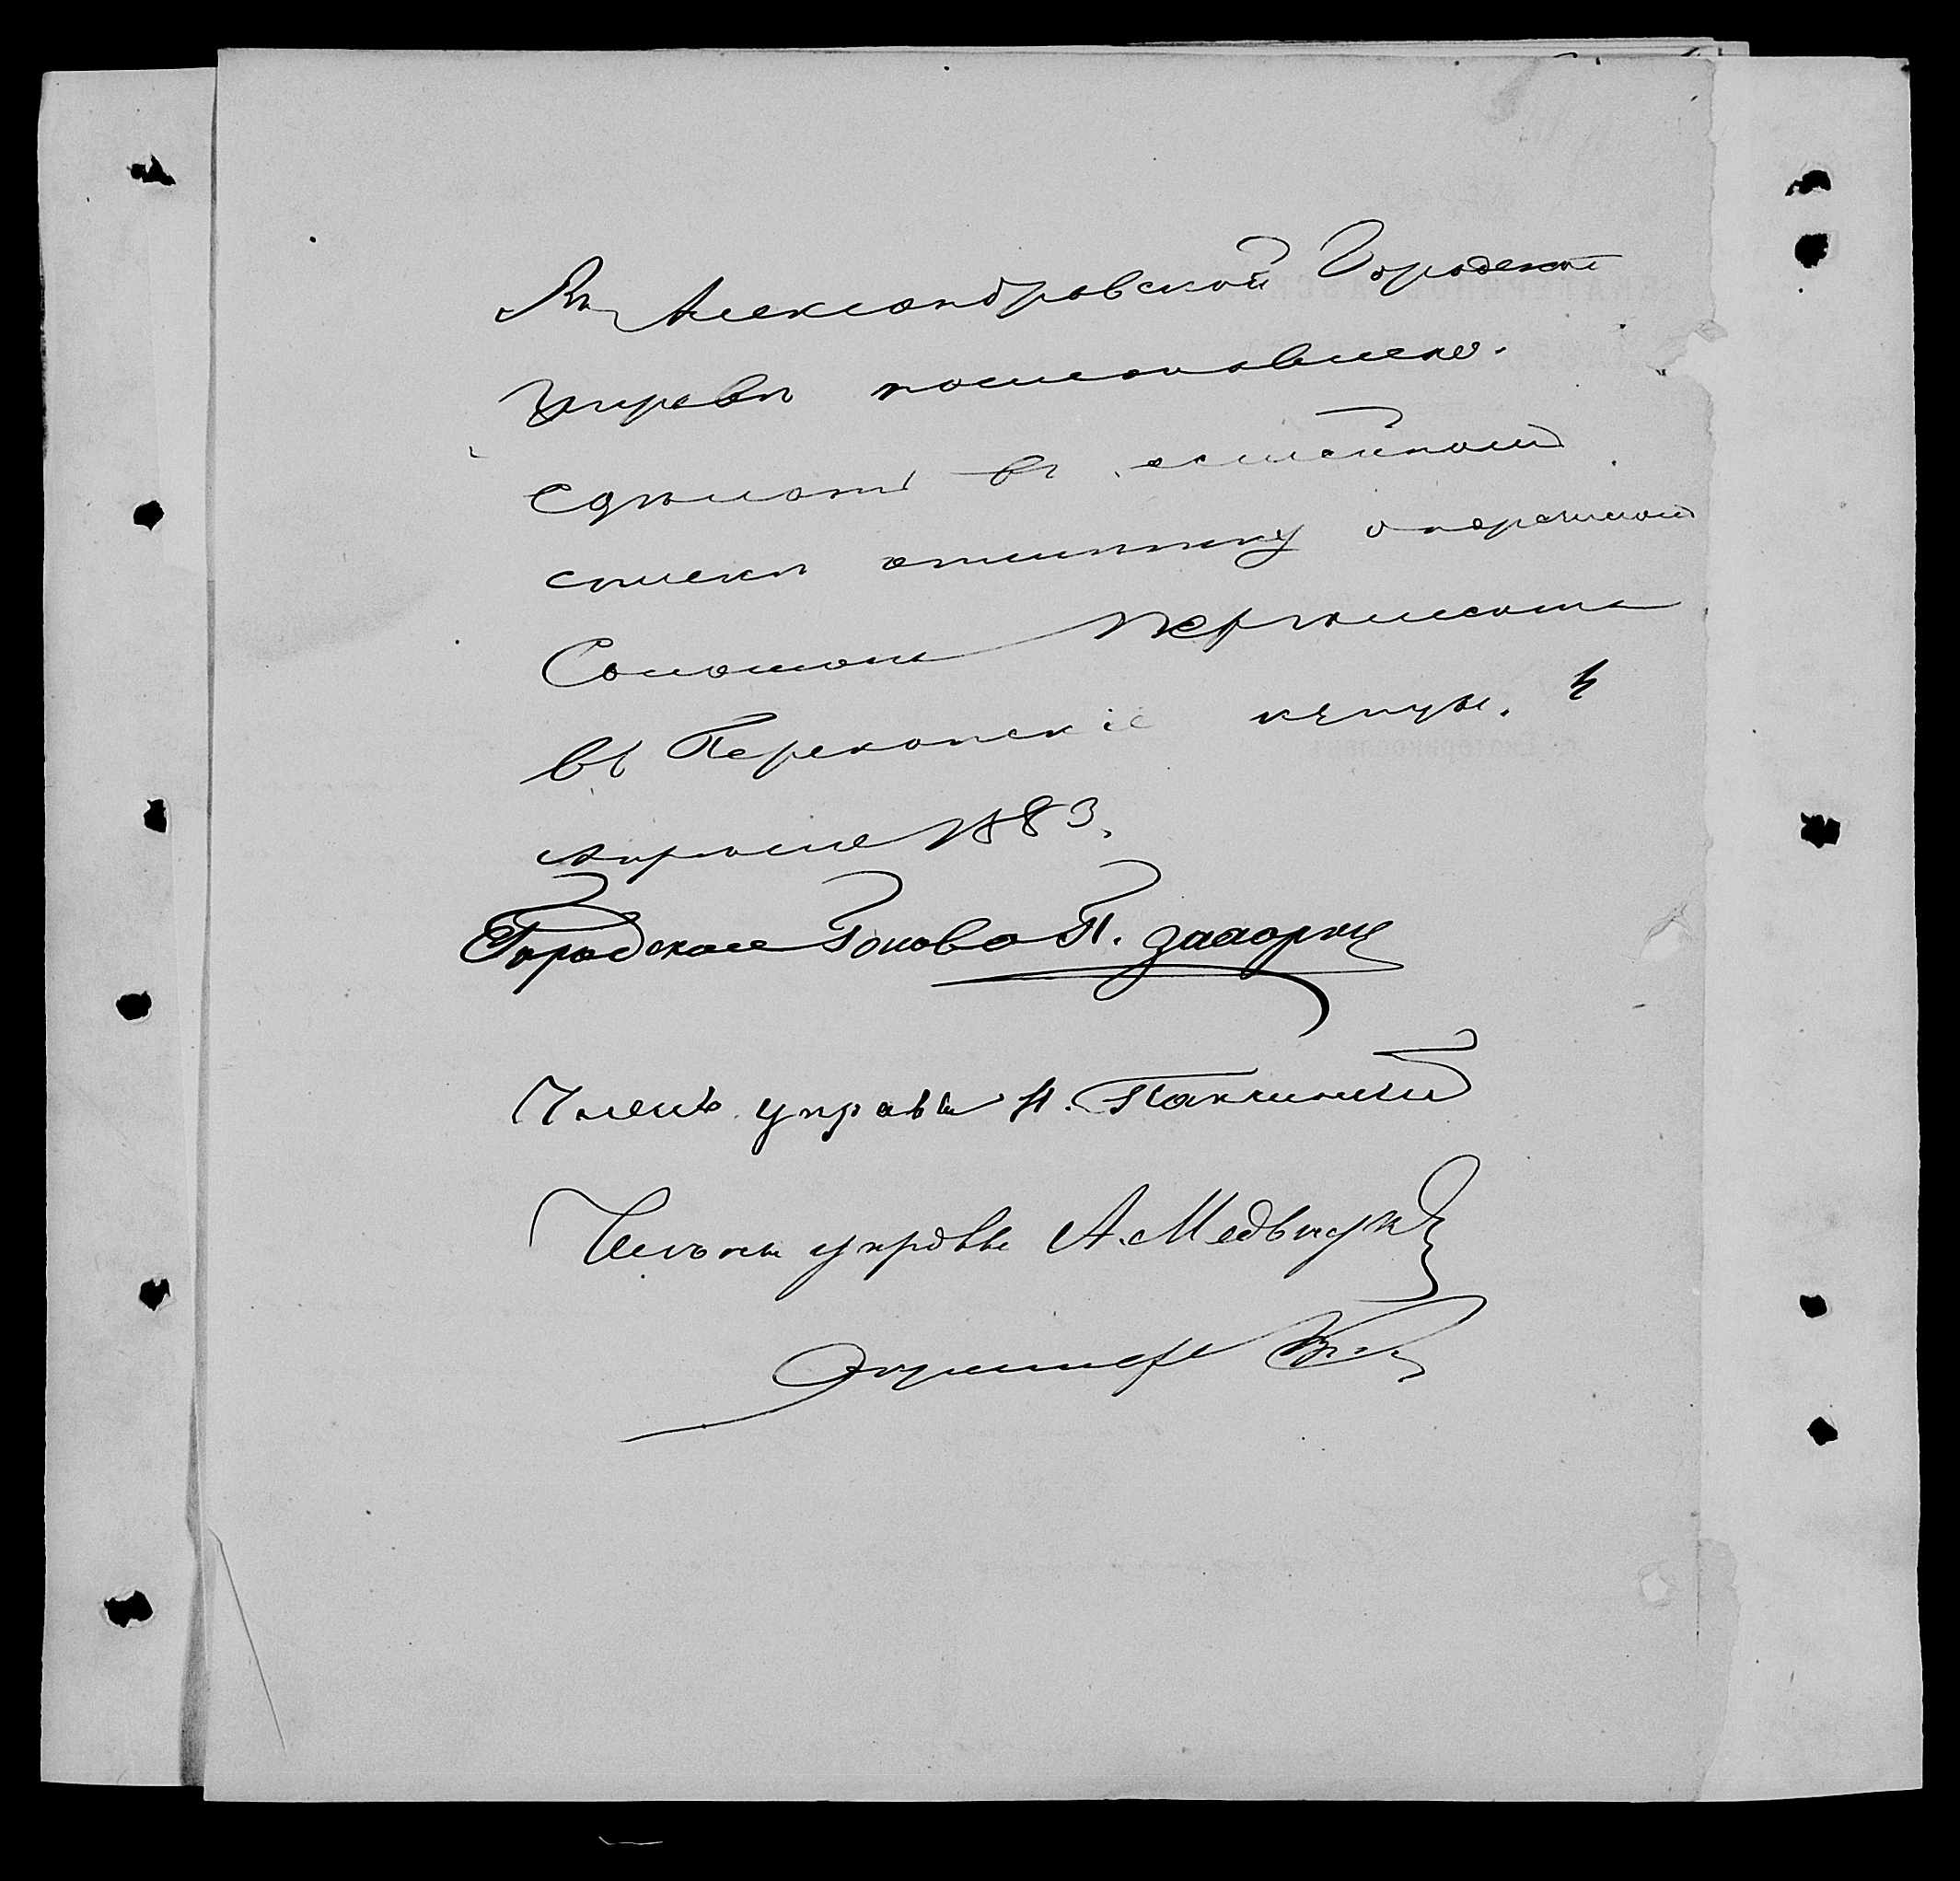 Въ Александровской Городской
Управѣ постановлено.
сдѣлать въ семейномъ
спискѣ отмѣтку о перечисл.
Соломона
въ Перекопскіе купцы. 4
Апрѣля 1883.
Городской Голова П. Захорин
Членъ управы Н.
Членъ управы А. Медвѣдк